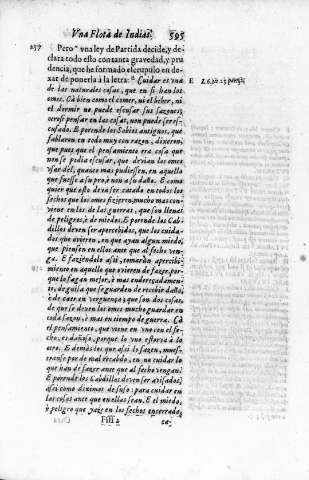 Vna Flota de Indias. 595
257 Pero una ley de Partida decide, y de-
clara todo esto con tanta gravedad, y pru
dencia, que he formado escrupulo en de-
xar de ponerla à la letra: Cuidar es vna
de las naturales cosas, que en si han los
omes. Cà bien como el comer, ni el beber, ni
el dormir no puede escusar sus sazones,
otrosi pensar en las cosas, non puede ser es-
cusado. E porende los Sabios antiguos, que
fablaron en todo muy con razon, dixeron,
que pues que el pensamiento era cosa que
non se podia escusar, que devian los omes
vsar del, quanto mas pudiessen, en aquello
que fuesse a su pro, è non a su daño. E como
quier que esto deva ser catado en todos los
fechos que los omes fizieren, mucho mas con-
viene en los de las guerras, que son llenas
de peligros, è de miedos. E porende los Cab-
dillos deven ser apercebidos, que los cuida-
dos que avieren, en que ayan algun miedo,
que piensen en ellas ante que al fecho ven-
ga. E faziendolo assi, tomaràn apercebi-
miento en aquello que ovieren de fazer, por-
que lo fagan mejor, è mas endereçadamen-
te, de guisa que se guarden de recibir daño,
ò de caer en verguença; que son dos cosas,
de que se deven los omes mucho guardar en
toda sazon, è mas en tiempo de guerra. Cà
el pensamiento, que viene en vno con el fe-
cho, es dañoso, porque lo vno estorva à lo
otro. E demàs los que assi lo fazen, mues-
transe por de mal recabdo, en no cuidar lo
que han de fazer ante que al fecho vengan.
E porende los Cabdillos deven ser avisados,
assi como diximos de suso: para cuidar en
las cosas ante que en ellas sean. E el miedo,
y peligro que yaze en los fechos encerrado,
Ffff 2 ca-